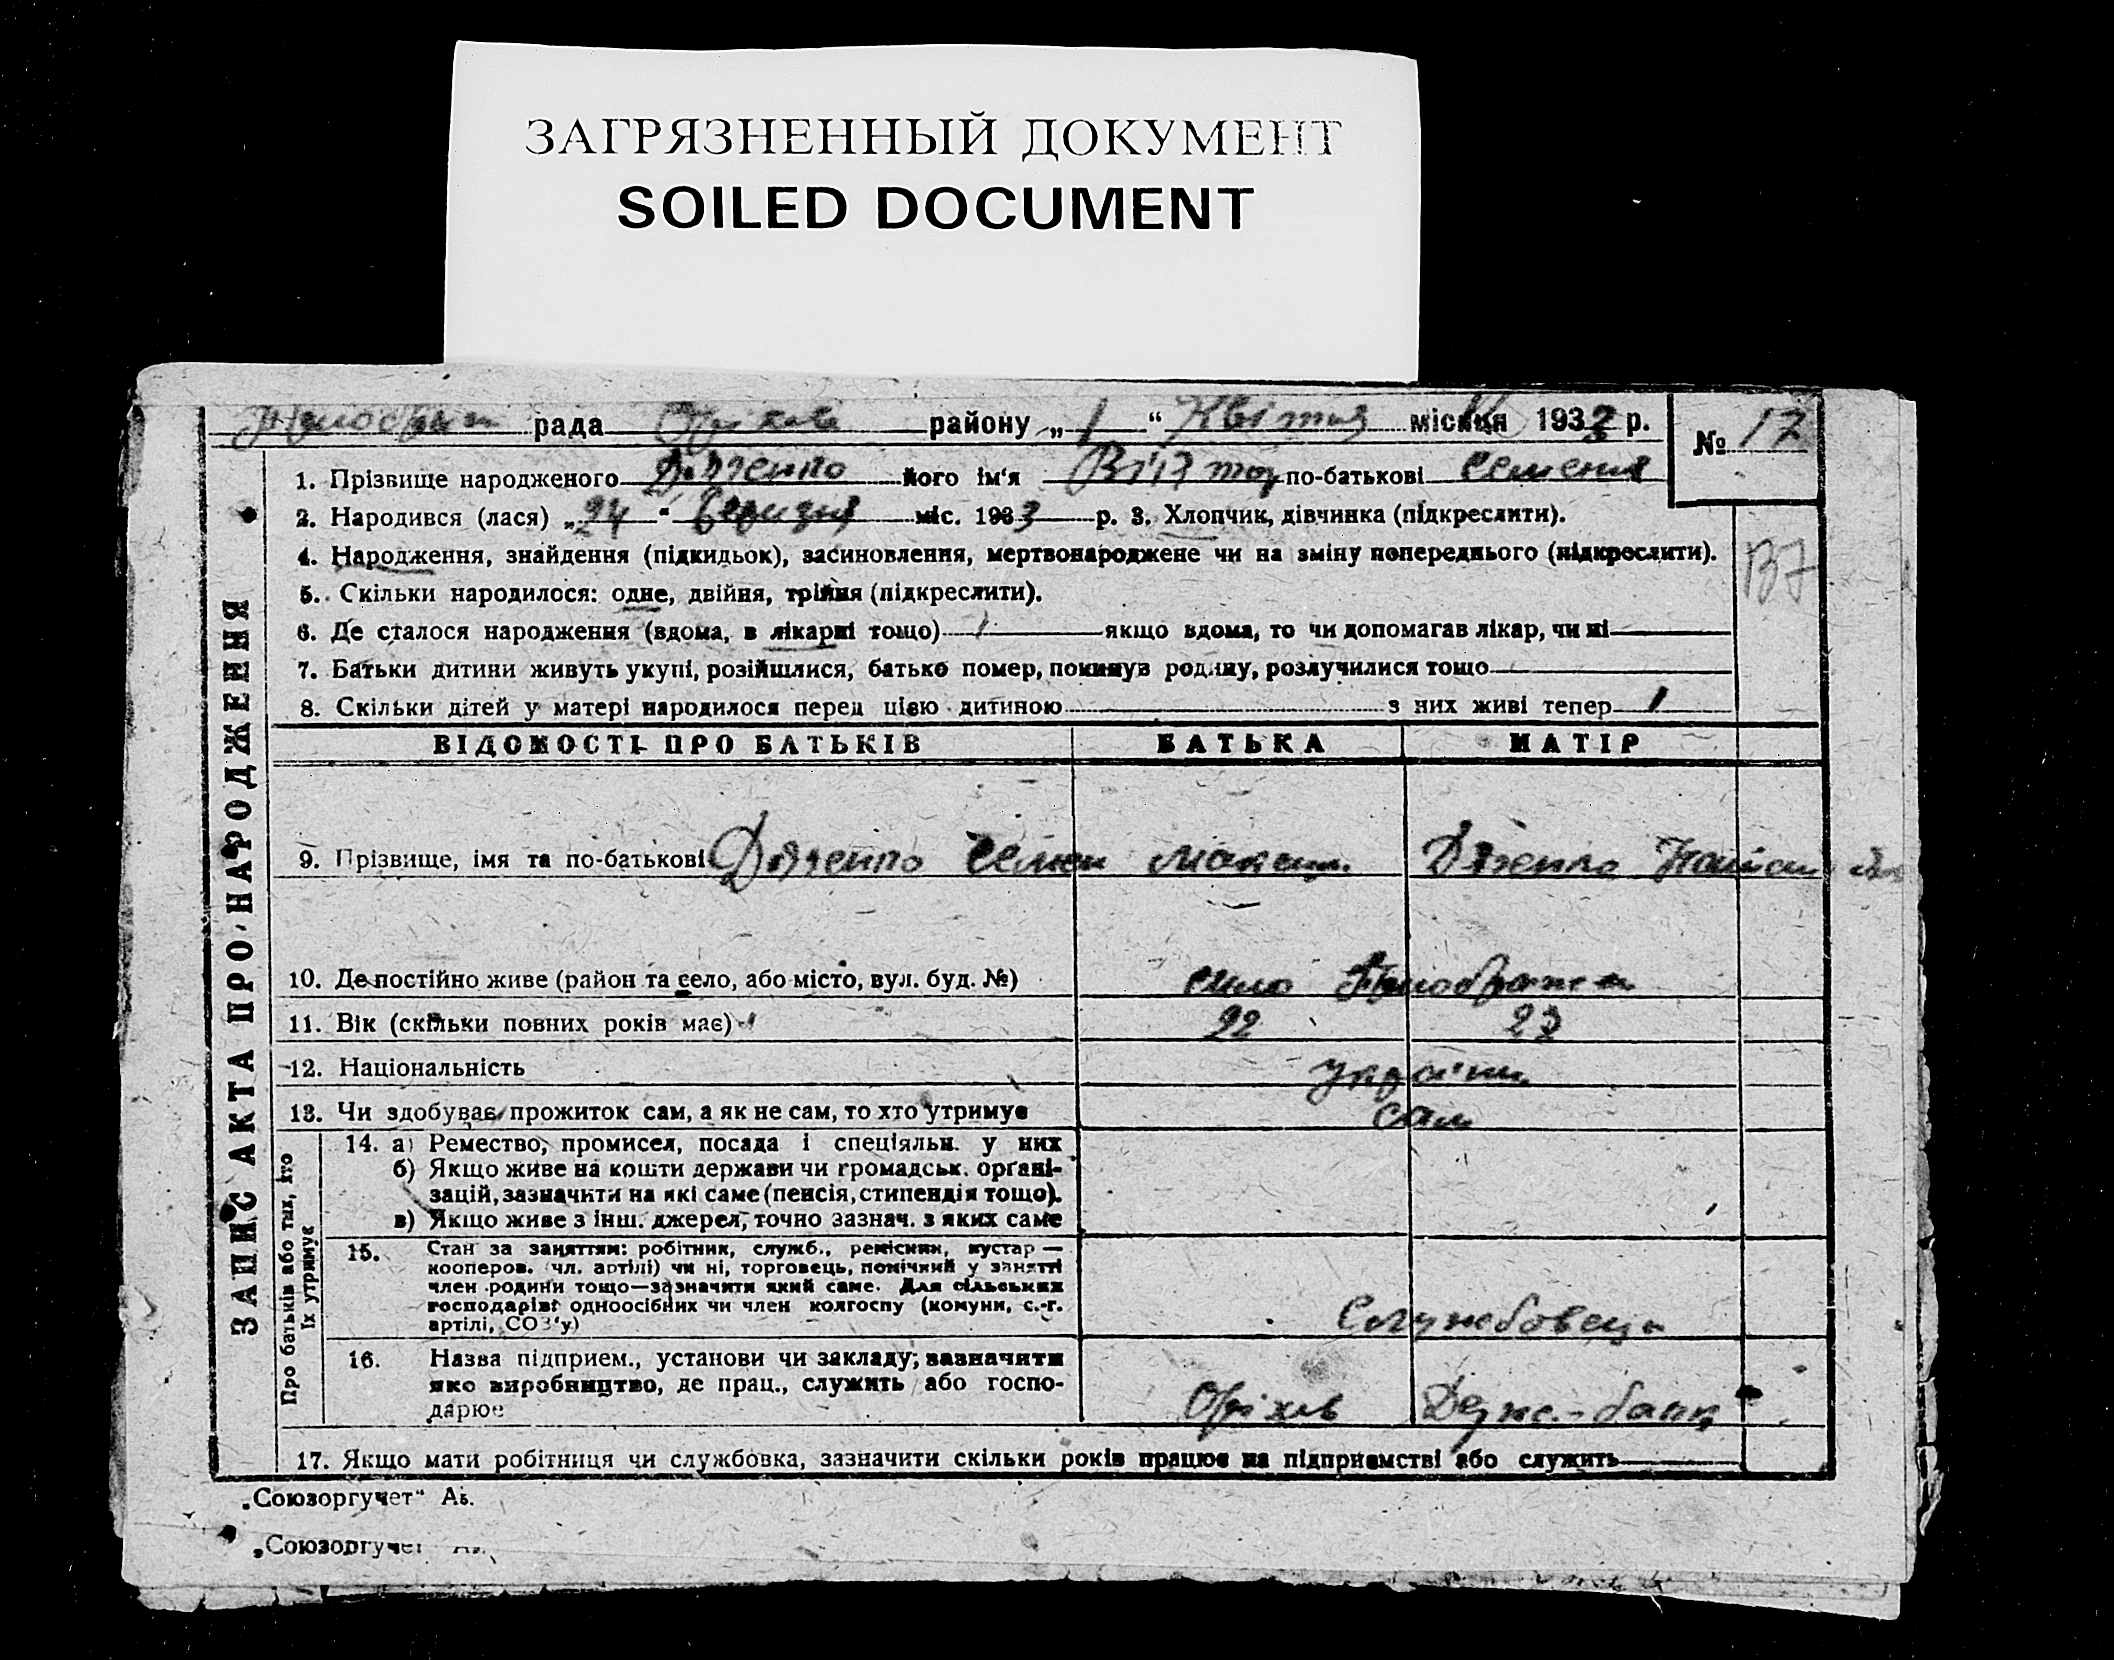 ЗАГРЯЗНЕННЫЙ ДОКУМЕНТ
SOILED DOCUMENT
рада Оріхів району „ 1 “ Квітня місяця 1933 р. № 17
1. Прізвище народженого його ім‘я Віктор по-батькові Семенов
2. Народився (лася) „ 24 “ Березня міс. 1933 р. 3. Хлопчик, дівчинка (підкреслити).
4. Народження, знайдення (підкидьок), засиновлення, мертвонароджене чи на зміну попереднього (підкреслити).
5. Скільки народилося: одне, двійня, трійня (підкреслити).
6. Де сталося народження (вдома, в лікарні тощо) якщо вдома, то чи допомагав лікар, чи ні
7. Батьки дитини живуть укупі, розійшлися, батько помер, покинув родину, розлучилися тощо
8. Скільки дітей у матері народилося перед цією дитиною з них живі тепер 1
ЗАПИС АКТА ПРО НАРОДЖЕННЯ
ВІДОМОСТІ ПРО БАТЬКІВ БАТЬКА МАТІР
9. Прізвище, імя та по-батькові Семен
10. Де постійно живе (район та село, або місто, вул. буд. №) село
11. Вік (скільки повних років має) 22 22
12. Національність україн.
13. Чи здобуває прожиток сам, а як не сам, то хто утримує сам
Про батьків або тих, хто
їх утримує
14. а) Ремество, промисел, посада і спеціяльн. у них
б) Якщо живе на кошти держави чи громадськ. органі-
зацій, зазначити на які саме (пенсія, стипендія тощо).
в) Якщо живе з інш. джерел, точно зазнач. з яких саме
15. Стан за заняттям: робітник, служб., ремісник, кустар —
кооперов. (чл. артілі) чи ні, торговець, помічний у занятті
член родини тощо—зазначити який саме. Для сільських
господарів: одноосібних чи член колгоспу (комуни, с.-г.
артілі, СОЗ‘у) Службовець
16. Назва підприєм., установи чи закладу; зазначити
яке виробництво, де прац., служить або госпо-
дарює Оріхів Держ.-банк
17. Якщо мати робітниця чи службовка, зазначити скільки років працює на підприємстві або служить
„Союзоргучет“ Аь.
„Союзоргучет